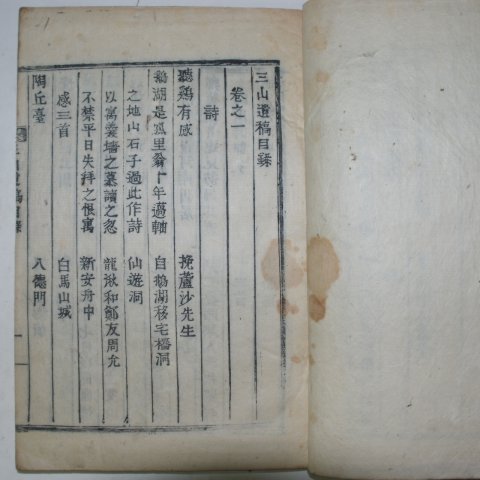 三山遺稿目錄
卷之一
詩
聽鷄有感 挽蘆沙先生
鵝湖是孤里翁十年薖軸 自鵝湖移宅櫧洞
之地山石子過此作詩 仙遊洞
以寓羹墻之慕讀之忽 龍湫和鄭友周允
不禁平日失拜之恨寓 新安舟中
感三首 白馬山城
陶丘臺 八德門
三山遺稿目錄 一